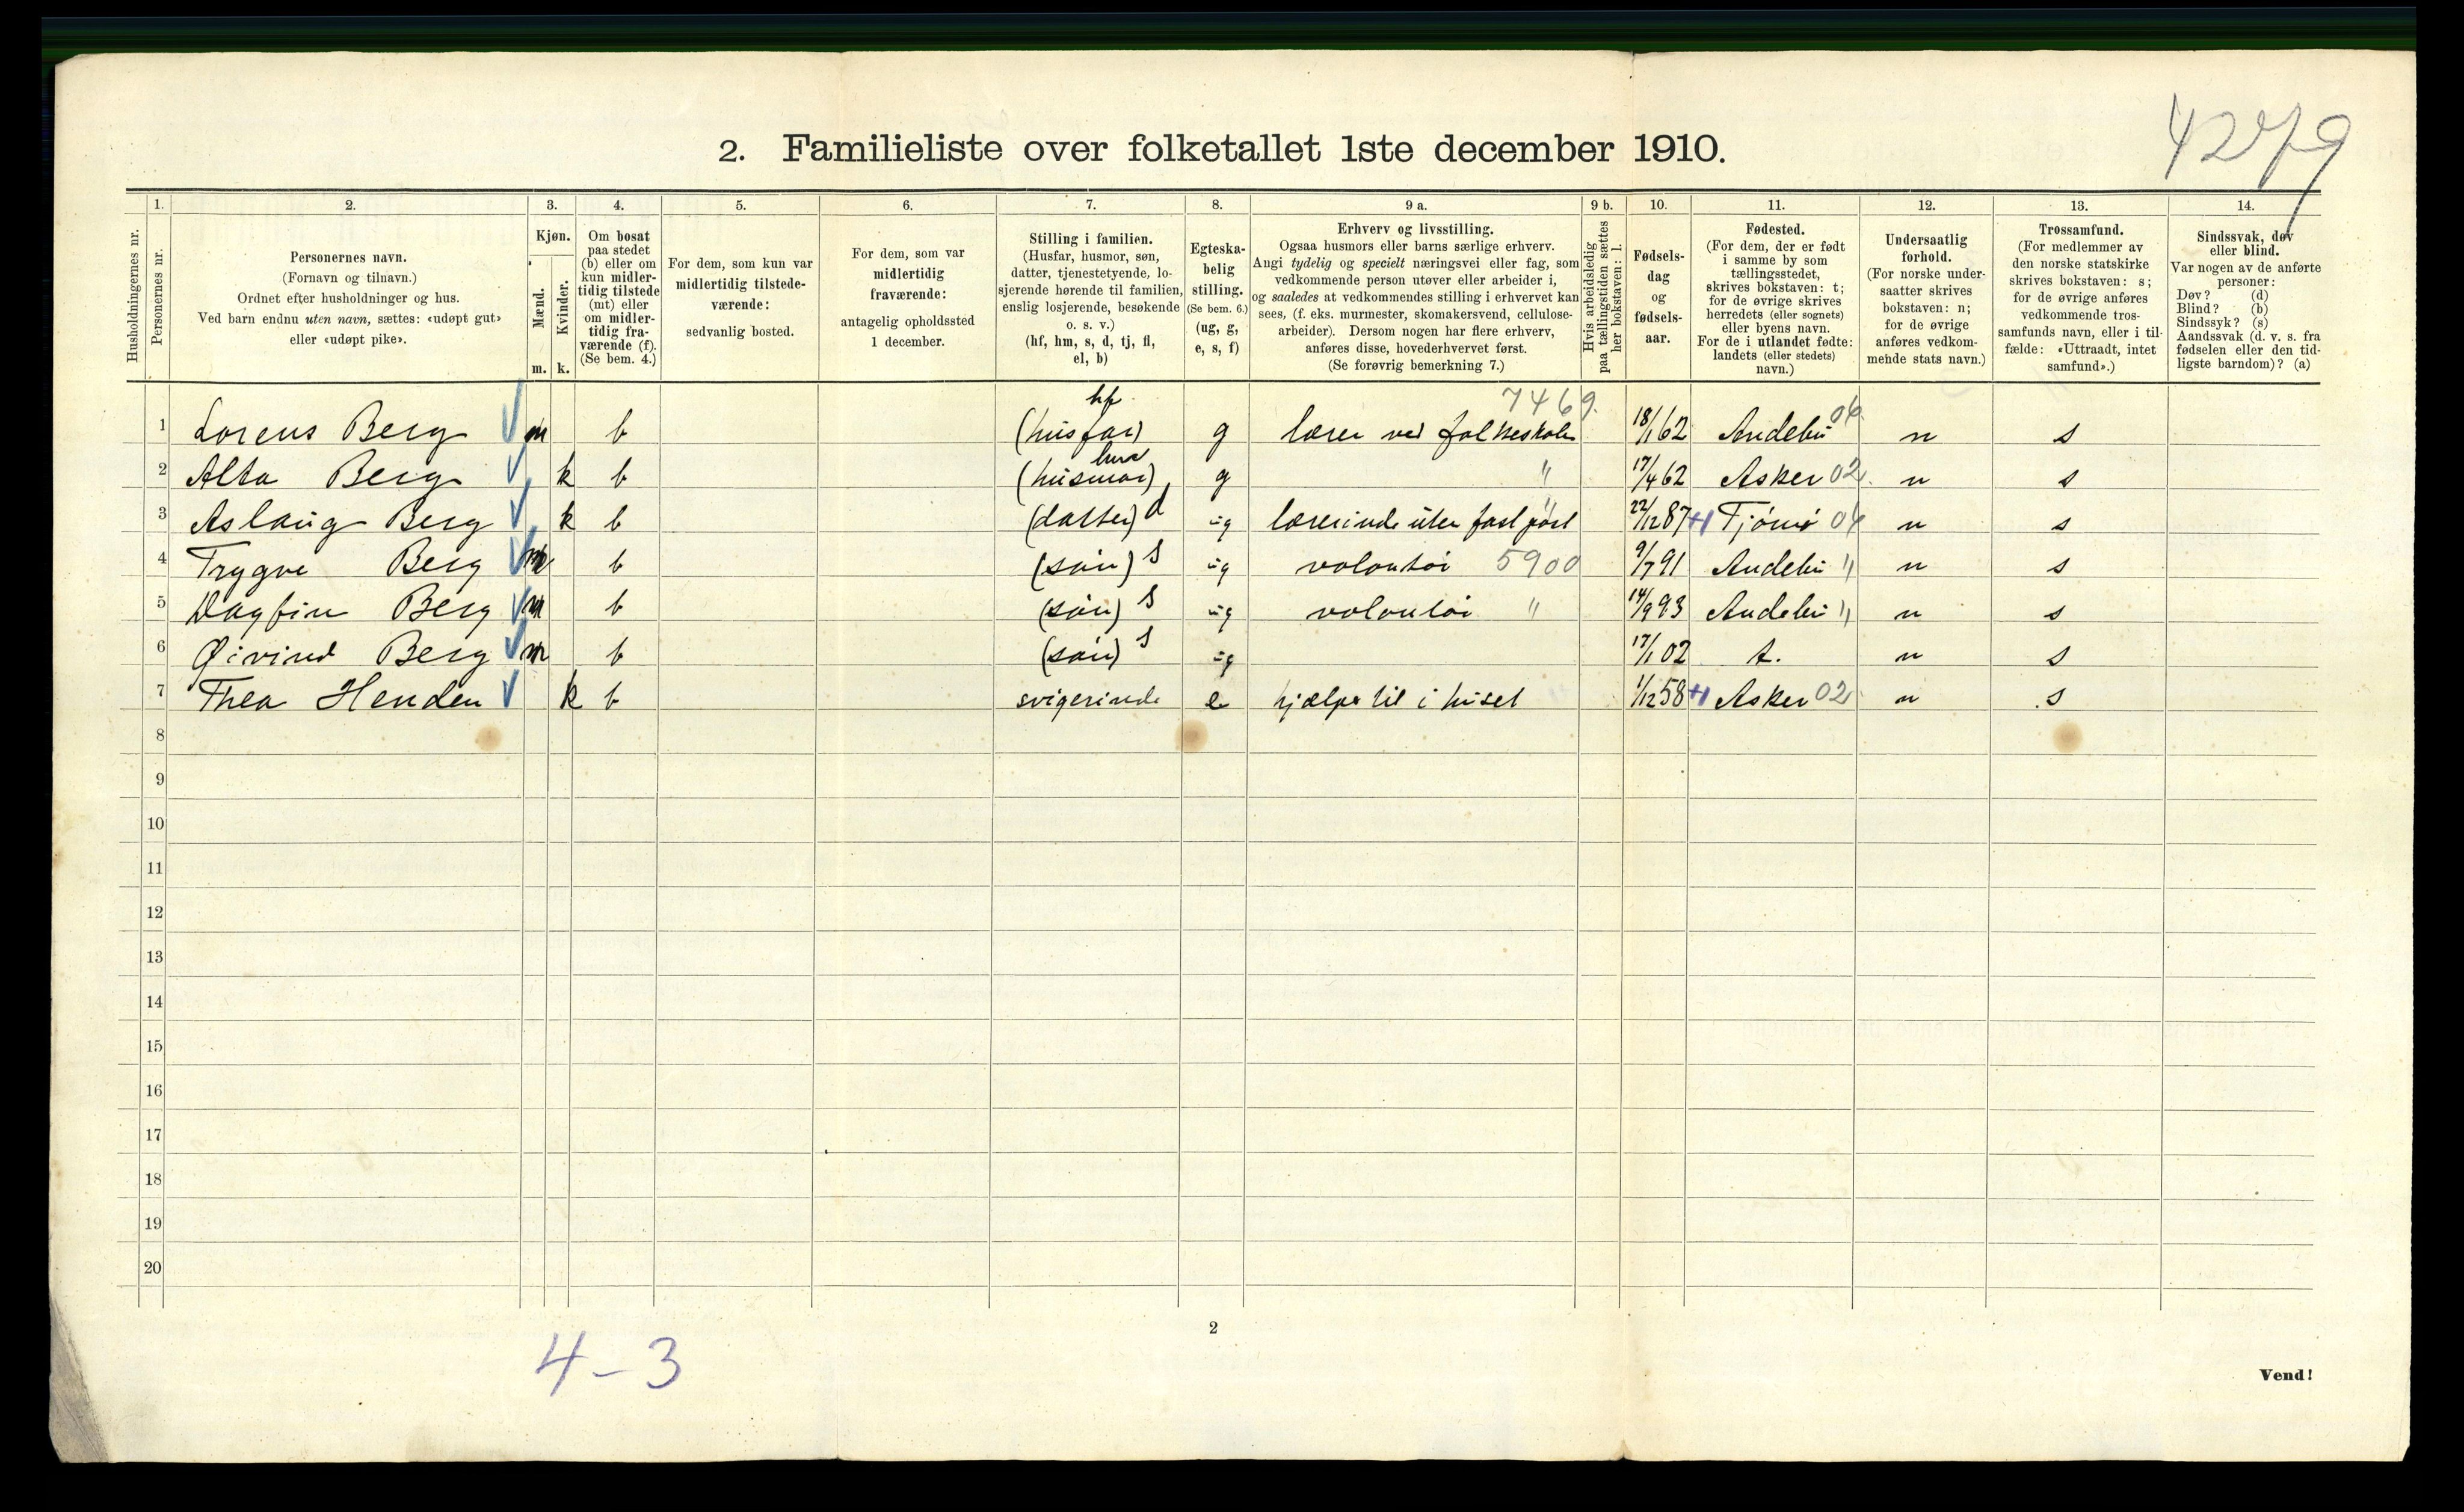 4279
2. Familieliste over folketallet 1ste december 1910.
Husholdningernes nr.
1.
Personernes nr.
2.
Personernes navn.
(Fornavn og tilnavn.)
Ordnet efter husholdninger og hus.
Ved barn endnu uten navn, sættes: «udøpt gut»
eller «udøpt pike».
3.
Kjøn.
Mænd.
Kvinder.
m. k.
4.
Om bosat
paa stedet
(b) eller om
kun midler-
tidig tilstede
(mt) eller
om midler-
tidig fra-
værende (f).
(Se bem. 4.)
5.
For dem, som kun var
midlertidig tilstede-
værende:
sedvanlig bosted.
6.
For dem, som var
midlertidig
fraværende:
antagelig opholdssted
1 december.
7.
Stilling i familien.
(Husfar, husmor, søn,
datter, tjenestetyende, lo-
sjerende hørende til familien,
enslig losjerende, besøkende
o. s. v.)
(hf, hm, s, d, tj, fl,
el, b)
8.
Egteska-
belig
stilling.
(Se bem. 6.)
(ug, g,
e, s, f)
9 a.
Erhverv og livsstilling.
Ogsaa husmors eller barns særlige erhverv.
Angi tydelig og specielt næringsvei eller fag, som
vedkommende person utøver eller arbeider i,
og saaledes at vedkommendes stilling i erhvervet kan
sees, (f. eks. murmester, skomakersvend, cellulose-
arbeider). Dersom nogen har flere erhverv,
anføres disse, hovederhvervet først.
(Se forøvrig bemerkning 7.)
9 b.
Hvis arbeidsledig
paa tællingstiden sættes
her bokstaven: l.
10.
Fødsels-
dag
og
fødsels-
aar.
11.
Fødested.
(For dem, der er født
i samme by som
tællingsstedet,
skrives bokstaven: t;
for de øvrige skrives
herredets (eller sognets)
eller byens navn.
For de i utlandet fødte:
landets (eller stedets)
navn.)
12.
Undersaatlig
forhold.
(For norske under-
saatter skrives
bokstaven: n;
for de øvrige
anføres vedkom-
mende stats navn.)
13.
Trossamfund.
(For medlemmer av
den norske statskirke
skrives bokstaven: s;
for de øvrige anføres
vedkommende tros-
samfunds navn, eller i til-
fælde: «Uttraadt, intet
samfund».)
14.
Sindssvak, døv
eller blind.
Var nogen av de anførte
personer:
Døv? (d)
Blind? (b)
Sindssyk? (s)
Aandssvak (d. v. s. fra
fødselen eller den tid-
ligste barndom)? (a)
hf 7469.
1 Lorens Berg m b (husfar) g lærer ved folkeskolen 18/1 62 Andebu 06 n s
2 Alta Berg k b (husmor) hm g " 17/4 62 Asker 02. n s
3 Aslaug Berg k b (datter) d ug lærerinde uten fast post " 22/12 87 +1 Tjømø 06 n s
4 Trygve Berg m b (søn) s ug volontør 5900 9/7 91 Andebu " n s
5 Dagfin Berg m b (søn) s ug volontør " 14/9 93 Andebu " n s
6 Øivind Berg m b (søn) s ug 17/1 02 t. n s
7 Thea Henden k b svigerinde e hjælper til i huset 1/12 58 +1 Asker 02 n s
8
9
10
11
12
13
14
15
16
17
18
19
20
2
4-3
Vend!